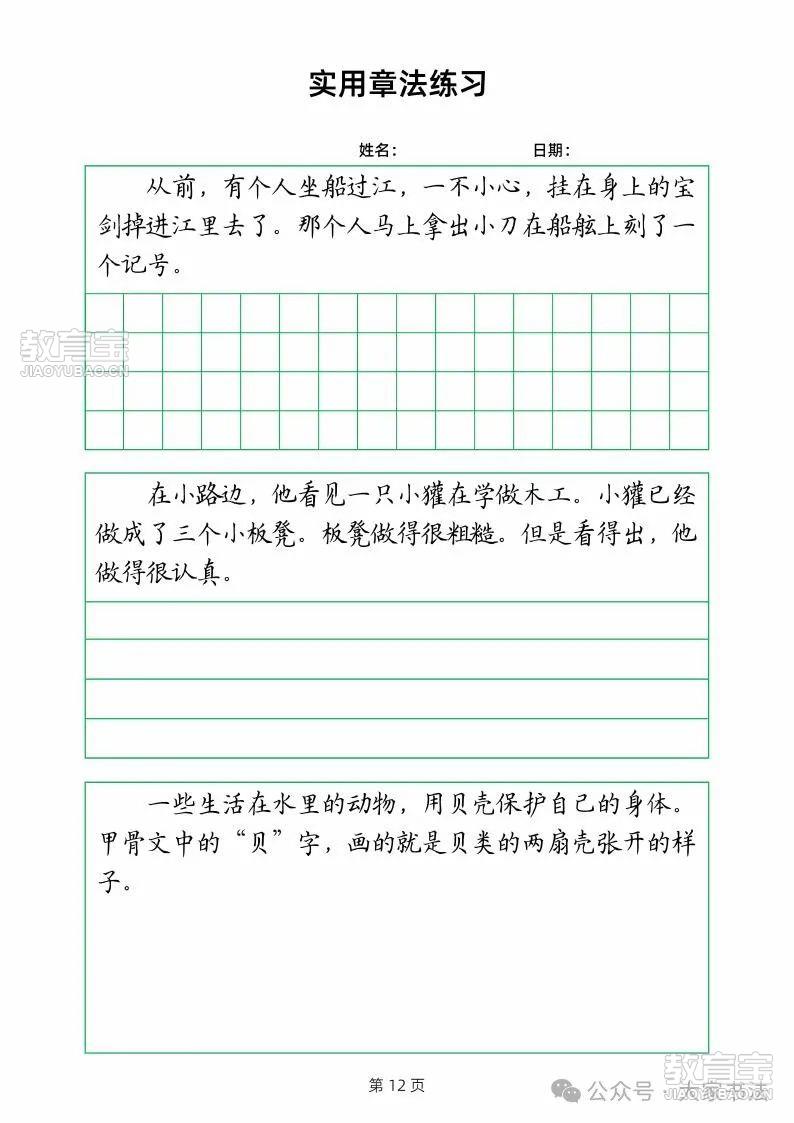 实用章法练习
姓名： 日期：
从前，有个人坐船过江，一不小心，挂在身上的宝
剑掉进江里去了。那个人马上拿出小刀在船舷上刻了一
个记号。
教育宝
JIAOYUBAO.CN
在小路边，他看见一只小獾在学做木工。小獾已经
做成了三个小板凳。板凳做得很粗糙。但是看得出，他
做得很认真。
一些生活在水里的动物，用贝壳保护自己的身体。
甲骨文中的“贝”字，画的就是贝类的两扇壳张开的样
子。
第 12 页
教育宝
JIAOYUBAO.CN
公众号 · 大家书法